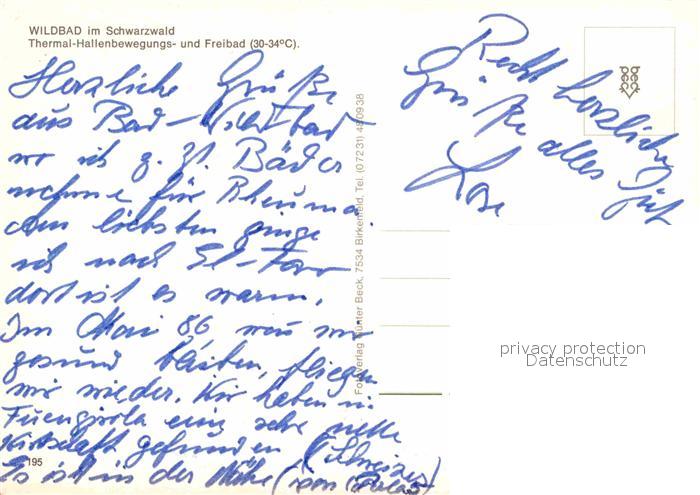 WILDBAD im Schwarzwald
Thermal-Hallenbewegungs- und Freibad (30-34°C).
Herzliche Grüße
aus Bad-Wildbad
wo ich z. Zt. Bäder
nehme für Rheuma.
Am liebsten ginge
ich nach
dort ist es warm.
Im Mai 86 wenn wir
gesund bleiben, fliegen
wir wieder. Wir haben in
Fuengirola eine sehr nette
Wirtschaft gefunden (Schweizer)
Es ist in der Nähe (von
195
Fotoverlag Günter Beck, 7534 Birkenfeld, Tel. (07231) 480938
Recht herzliche
Grüße alles Gut
beck
privacy protection
Datenschutz